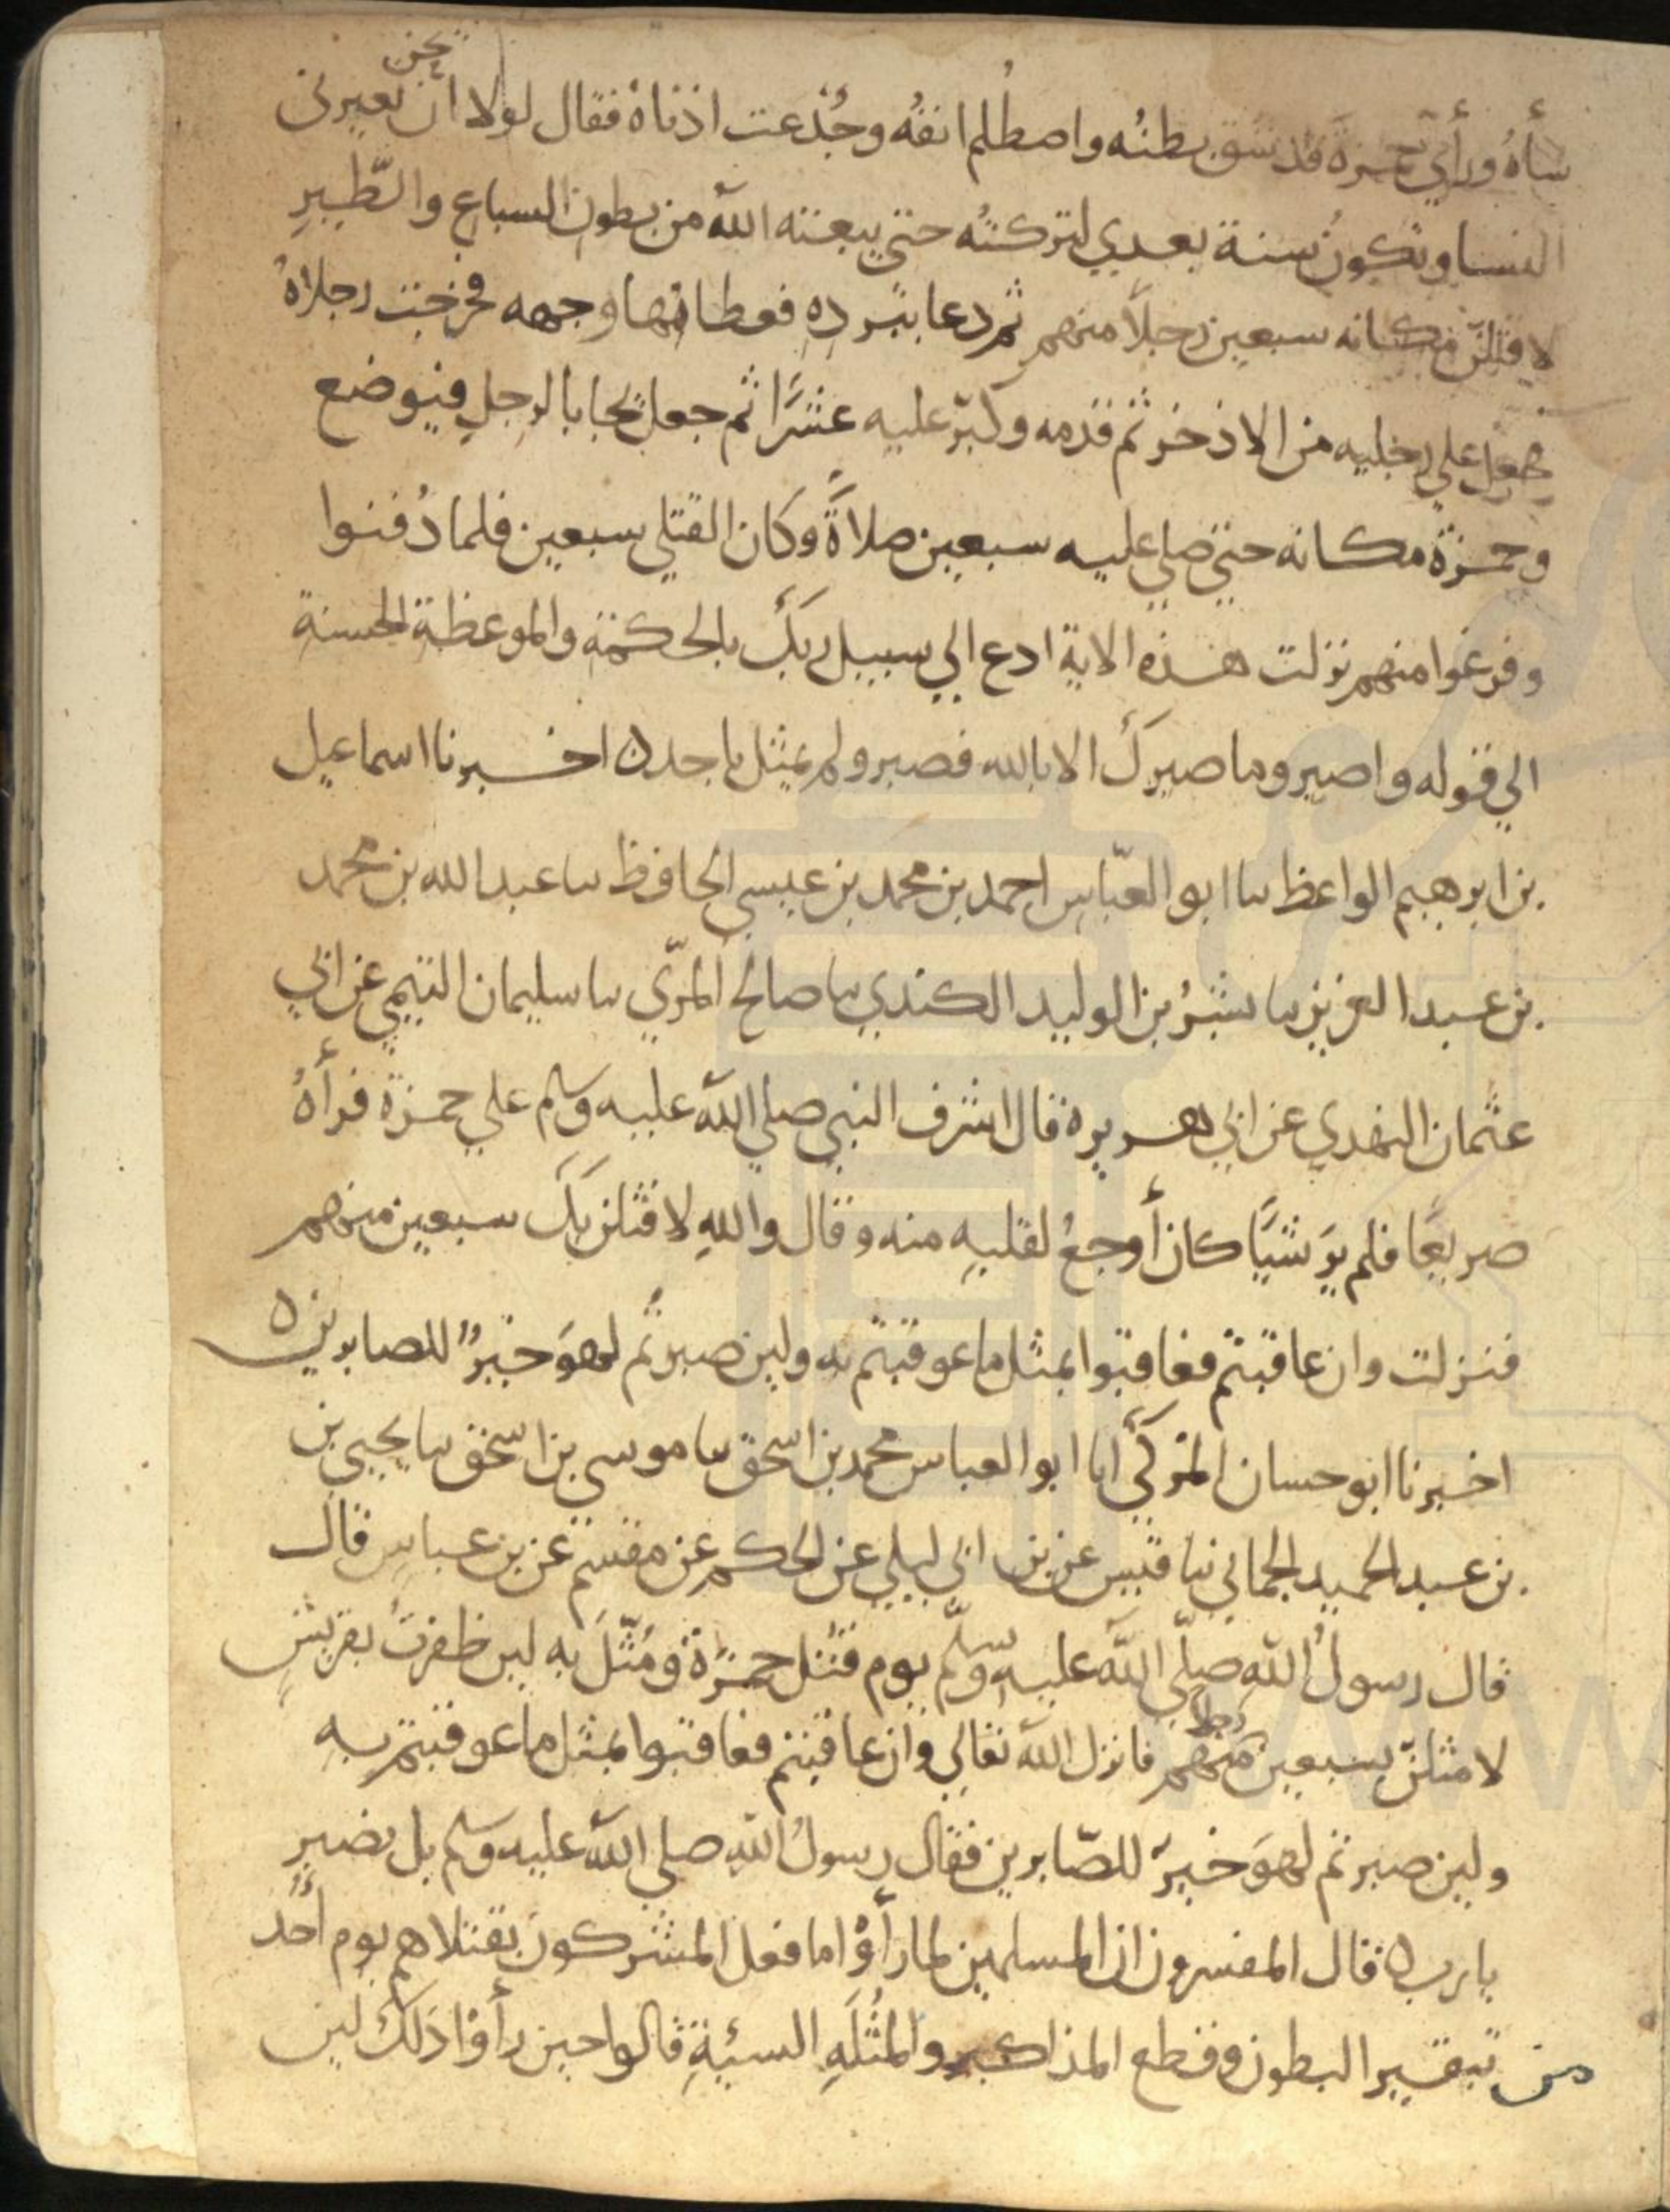 تحزن
ساءهُ ورأي حمزة قد شق بطنُه واصطُلم انفُه وجُدعت اذناه فقال لولا ان تعيرني
النسا وتكون سنة بعدي لتركتُه حتي يبعثه الله من بطون السباع والطّيرِ
لاقتلنّ مكانه سبعين رجلاً منهم ثم دعا ببرده فغطا بها وجهه فخرجت رجلاهُ
فجعل علي رجليه من الاذخر ثم قدمه وكبّر عليه عشرًا ثم جعل يجا بالرجلِ فيوضع
وحمزة مكانه حتي صلي عليه سبعين صلاةً وكان القتلي سبعين فلما دُفنوا
وفرغوا منهم نزلت هذه الاية ادع الي سبيل ربكَ بالحكمة والموعظةِ الحسنةِ
الي قوله واصبر وما صبركَ الا بالله فصبر ولم يمثل باحد ه اخبرنا اسماعيل
بن ابرهيم الواعظ سا ابو العبّاس احمد بن محمد بن عيسي الحافظ سا عبد الله بن محمد
بن عبد العزيز سا بشرُ بن الوليد الكندي سا صالح المرّي سا سليمان التيمي عن ابي
عثمان النهدي عن ابي هريرة قال اشرف النبي صلي الله عليه وسلم علي حمزة فرأهُ
صريعًا فلم يرَ شيًا كان أوجعُ لقلبِه منه وقال واللهِ لاقتلن بكَ سبعين منهم
فنزلت وان عاقبتم فعاقبوا بمثل ما عوقبتم به ولين صبرتُم لهوَ خيرٌ للصابرين ه
اخبرنا ابو حسان المزكّي انا ابو العباس محمد بن اسحق سا موسي بن اسحق سا يحيي بن
بن عبد الحميد الحماني نبا قيس عن بن ابي ليلي عن الحكم عن مقسمٍ عن بن عباسٍ قال
قال رسولُ اللهِ صلّي الله عليه وسلّم يوم قتل حمزةُ ومُثّلَ به لين ظفرتُ بقريشٍ
لامثلنّ بسبعين رجلا منهم فانزل الله تعالي وان عاقبتم فعاقبوا بمثل ما عوقبتم به
ولين صبرتم لهوَ خيرٌ للصّابرين فقال رسولُ اللهِ صلي الله عليه وسلم بل نصبرِ
يا رب ه قال المفسرون ان المسلمين لما رأوْا ما فعل المشركون بقتلاهم يوم أحُد
من تبقير البطون وقطع المذاكير والمثُلَهِ السيئةِ قالوا حين رأوْا ذلك لين